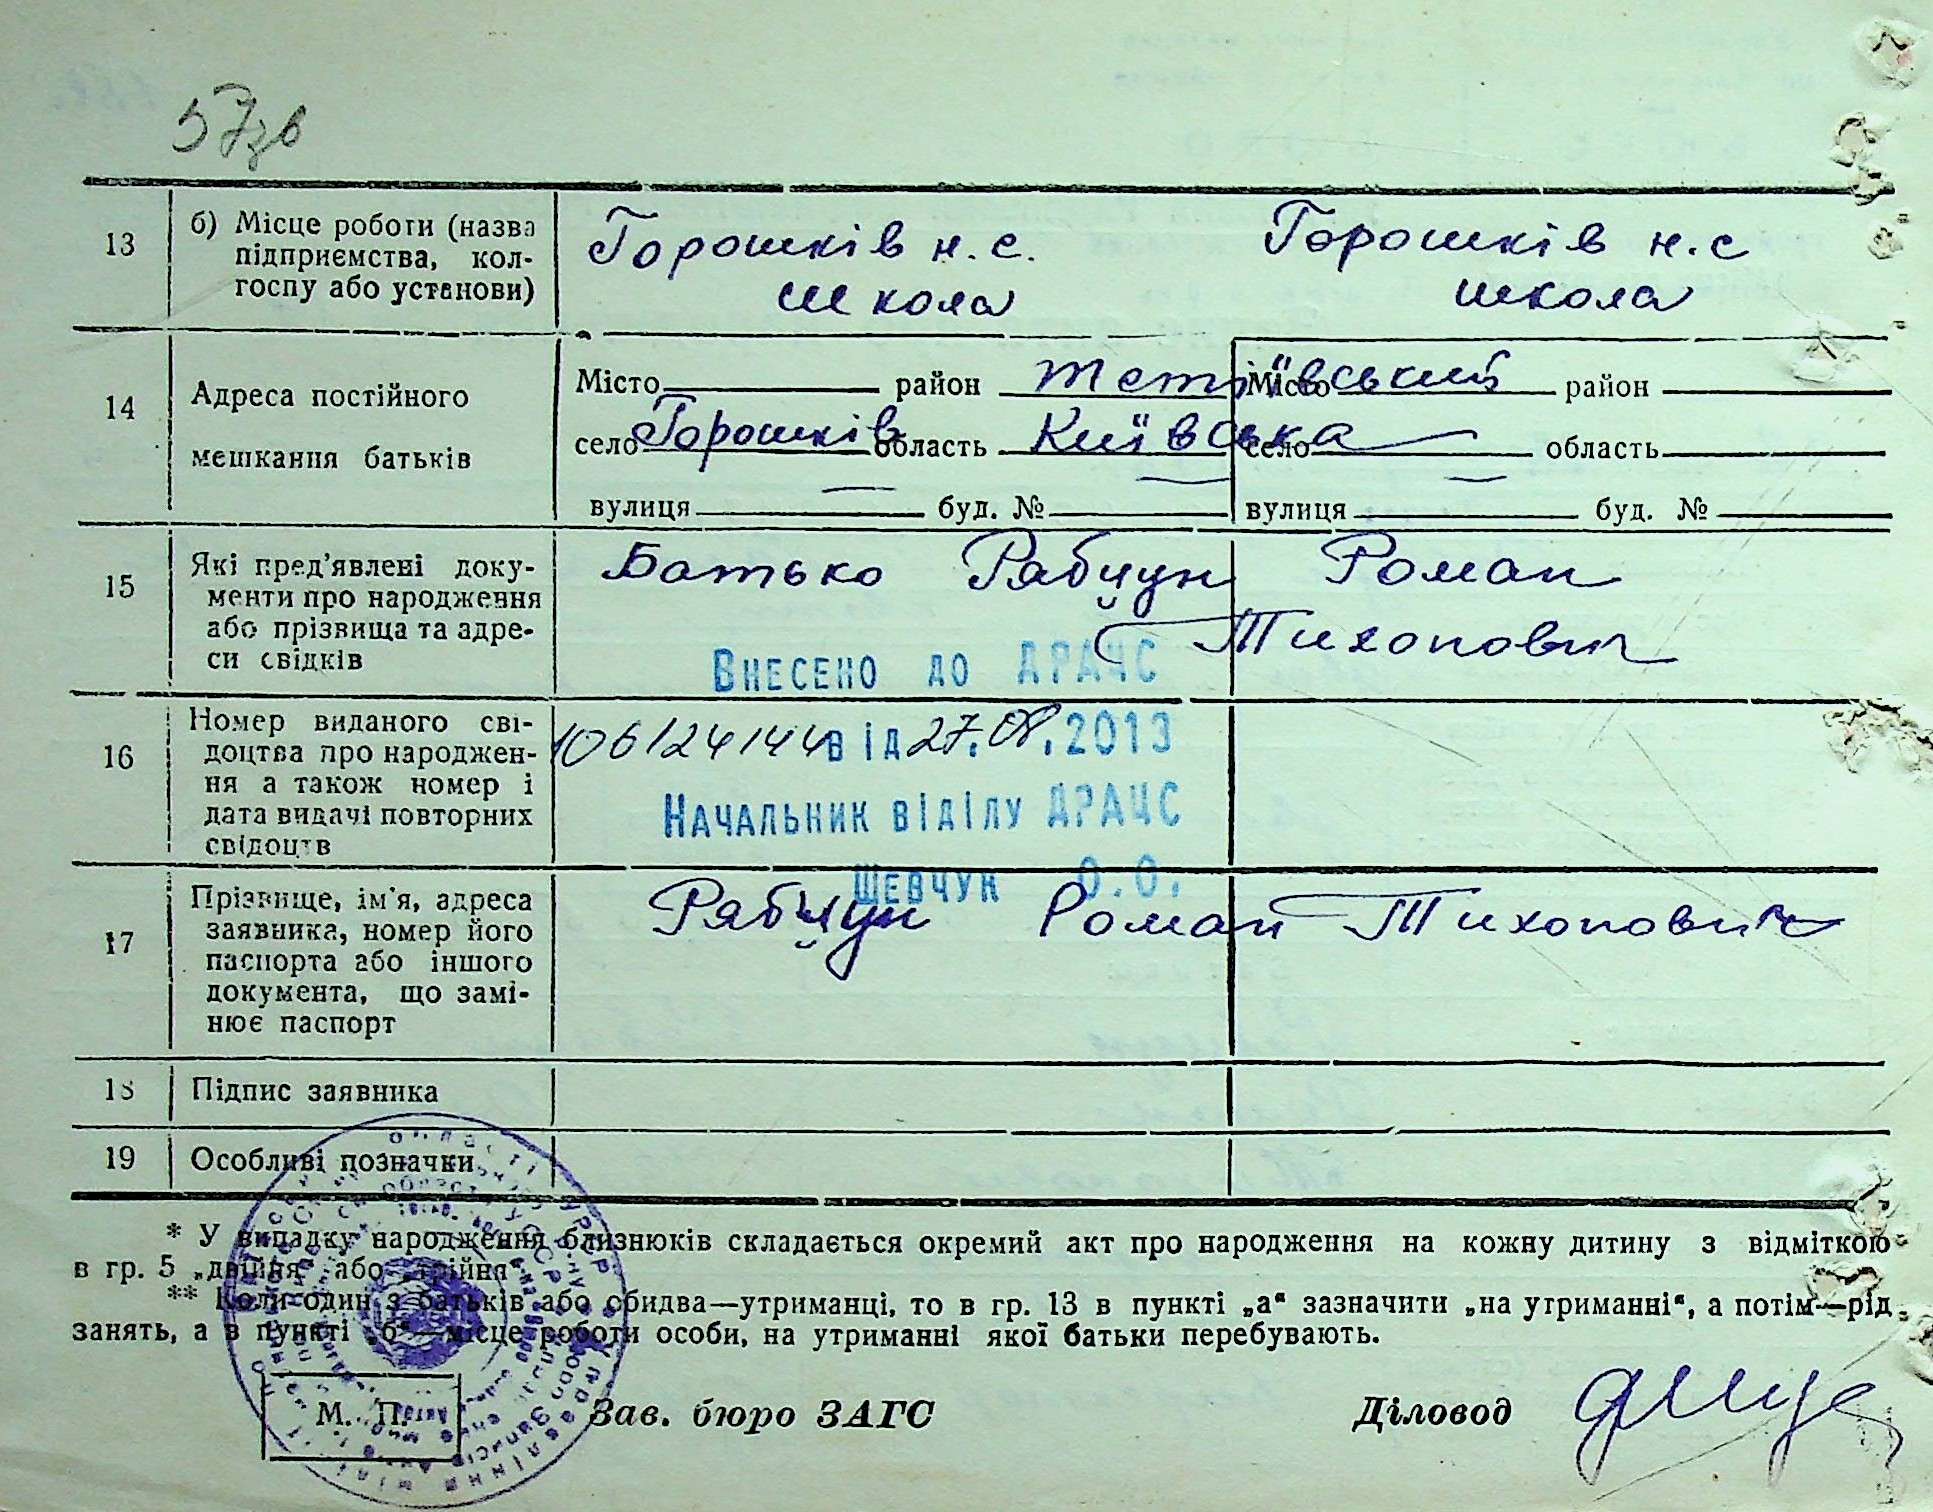 57зв
13 б) Місце роботи (назва підприємства, колгоспу або установи)
Горошків н.с. школа
Горошків н.с школа
14 Адреса постійного мешкання батьків
Місто район Тетіївський
село Горошків область Київська
вулиця буд. №
Місто район
село область
вулиця буд. №
15 Які пред'явлені доку-
менти про народження
або прізвища та адре-
си свідків
Батько Рябчун Роман
Тихонович
Внесено до ДРАЦС
16 Номер виданого сві-
доцтва про народжен-
ня а також номер і
дата видачі повторних
свідоцтв
10612414 від 27.08.2013
Начальник відділу ДРАЦС
Шевчук О.О.
17 Прізвище, ім'я, адреса
заявника, номер його
паспорта або іншого
документа, що замі-
нює паспорт
Рябчун Роман Тихонович
18 Підпис заявника
19 Особливі позначки
* У випадку народження близнюків складається окремий акт про народження на кожну дитину з відміткою
в гр. 5 „двійня" або „трійня"
** Коли один з батьків або обидва—утриманці, то в гр. 13 в пункті „а" зазначити „на утриманні", а потім—рід
занять, а в пункті „б"—місце роботи особи, на утриманні якої батьки перебувають.
М. П. Зав. бюро ЗАГС Діловод